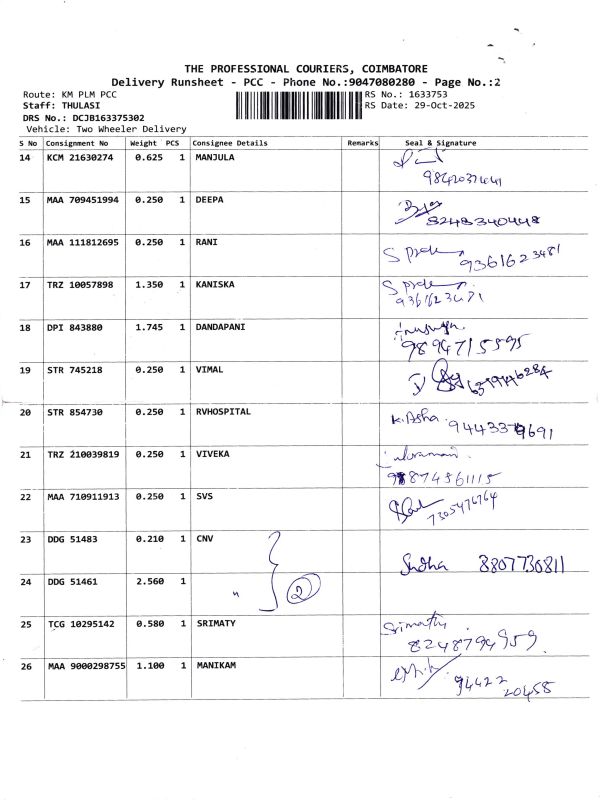 THE PROFESSIONAL COURIERS, COIMBATORE
Delivery Runsheet - PCC - Phone No.:9047080280 - Page No.:2
Route: KM PLM PCC
RS No.: 1633753
Staff: THULASI
RS Date: 29-Oct-2025
DRS No.: DCJB163375302
Vehicle: Two Wheeler Delivery
S No Consignment No Weight PCS Consignee Details Remarks Seal & Signature
14 KCM 21630274 0.625 1 MANJULA
15 MAA 709451994 0.250 1 DEEPA
8248340448
16 MAA 111812695 0.250 1 RANI
9361623481
17 TRZ 10057898 1.350 1 KANISKA
18 DPI 843880 1.745 1 DANDAPANI
9894715595
19 STR 745218 0.250 1 VIMAL
20 STR 854730 0.250 1 RVHOSPITAL K. Asha
21 TRZ 210039819 0.250 1 VIVEKA
22 MAA 710911913 0.250 1 SVS
7305476764
23 DDG 51483 0.210 1 CNV
Sudha 8807730811
24 DDG 51461 2.560 1 " 2
25 TCG 10295142 0.580 1 SRIMATY Srimathi
8248794959
26 MAA 9000298755 1.100 1 MANIKAM
94422
20458